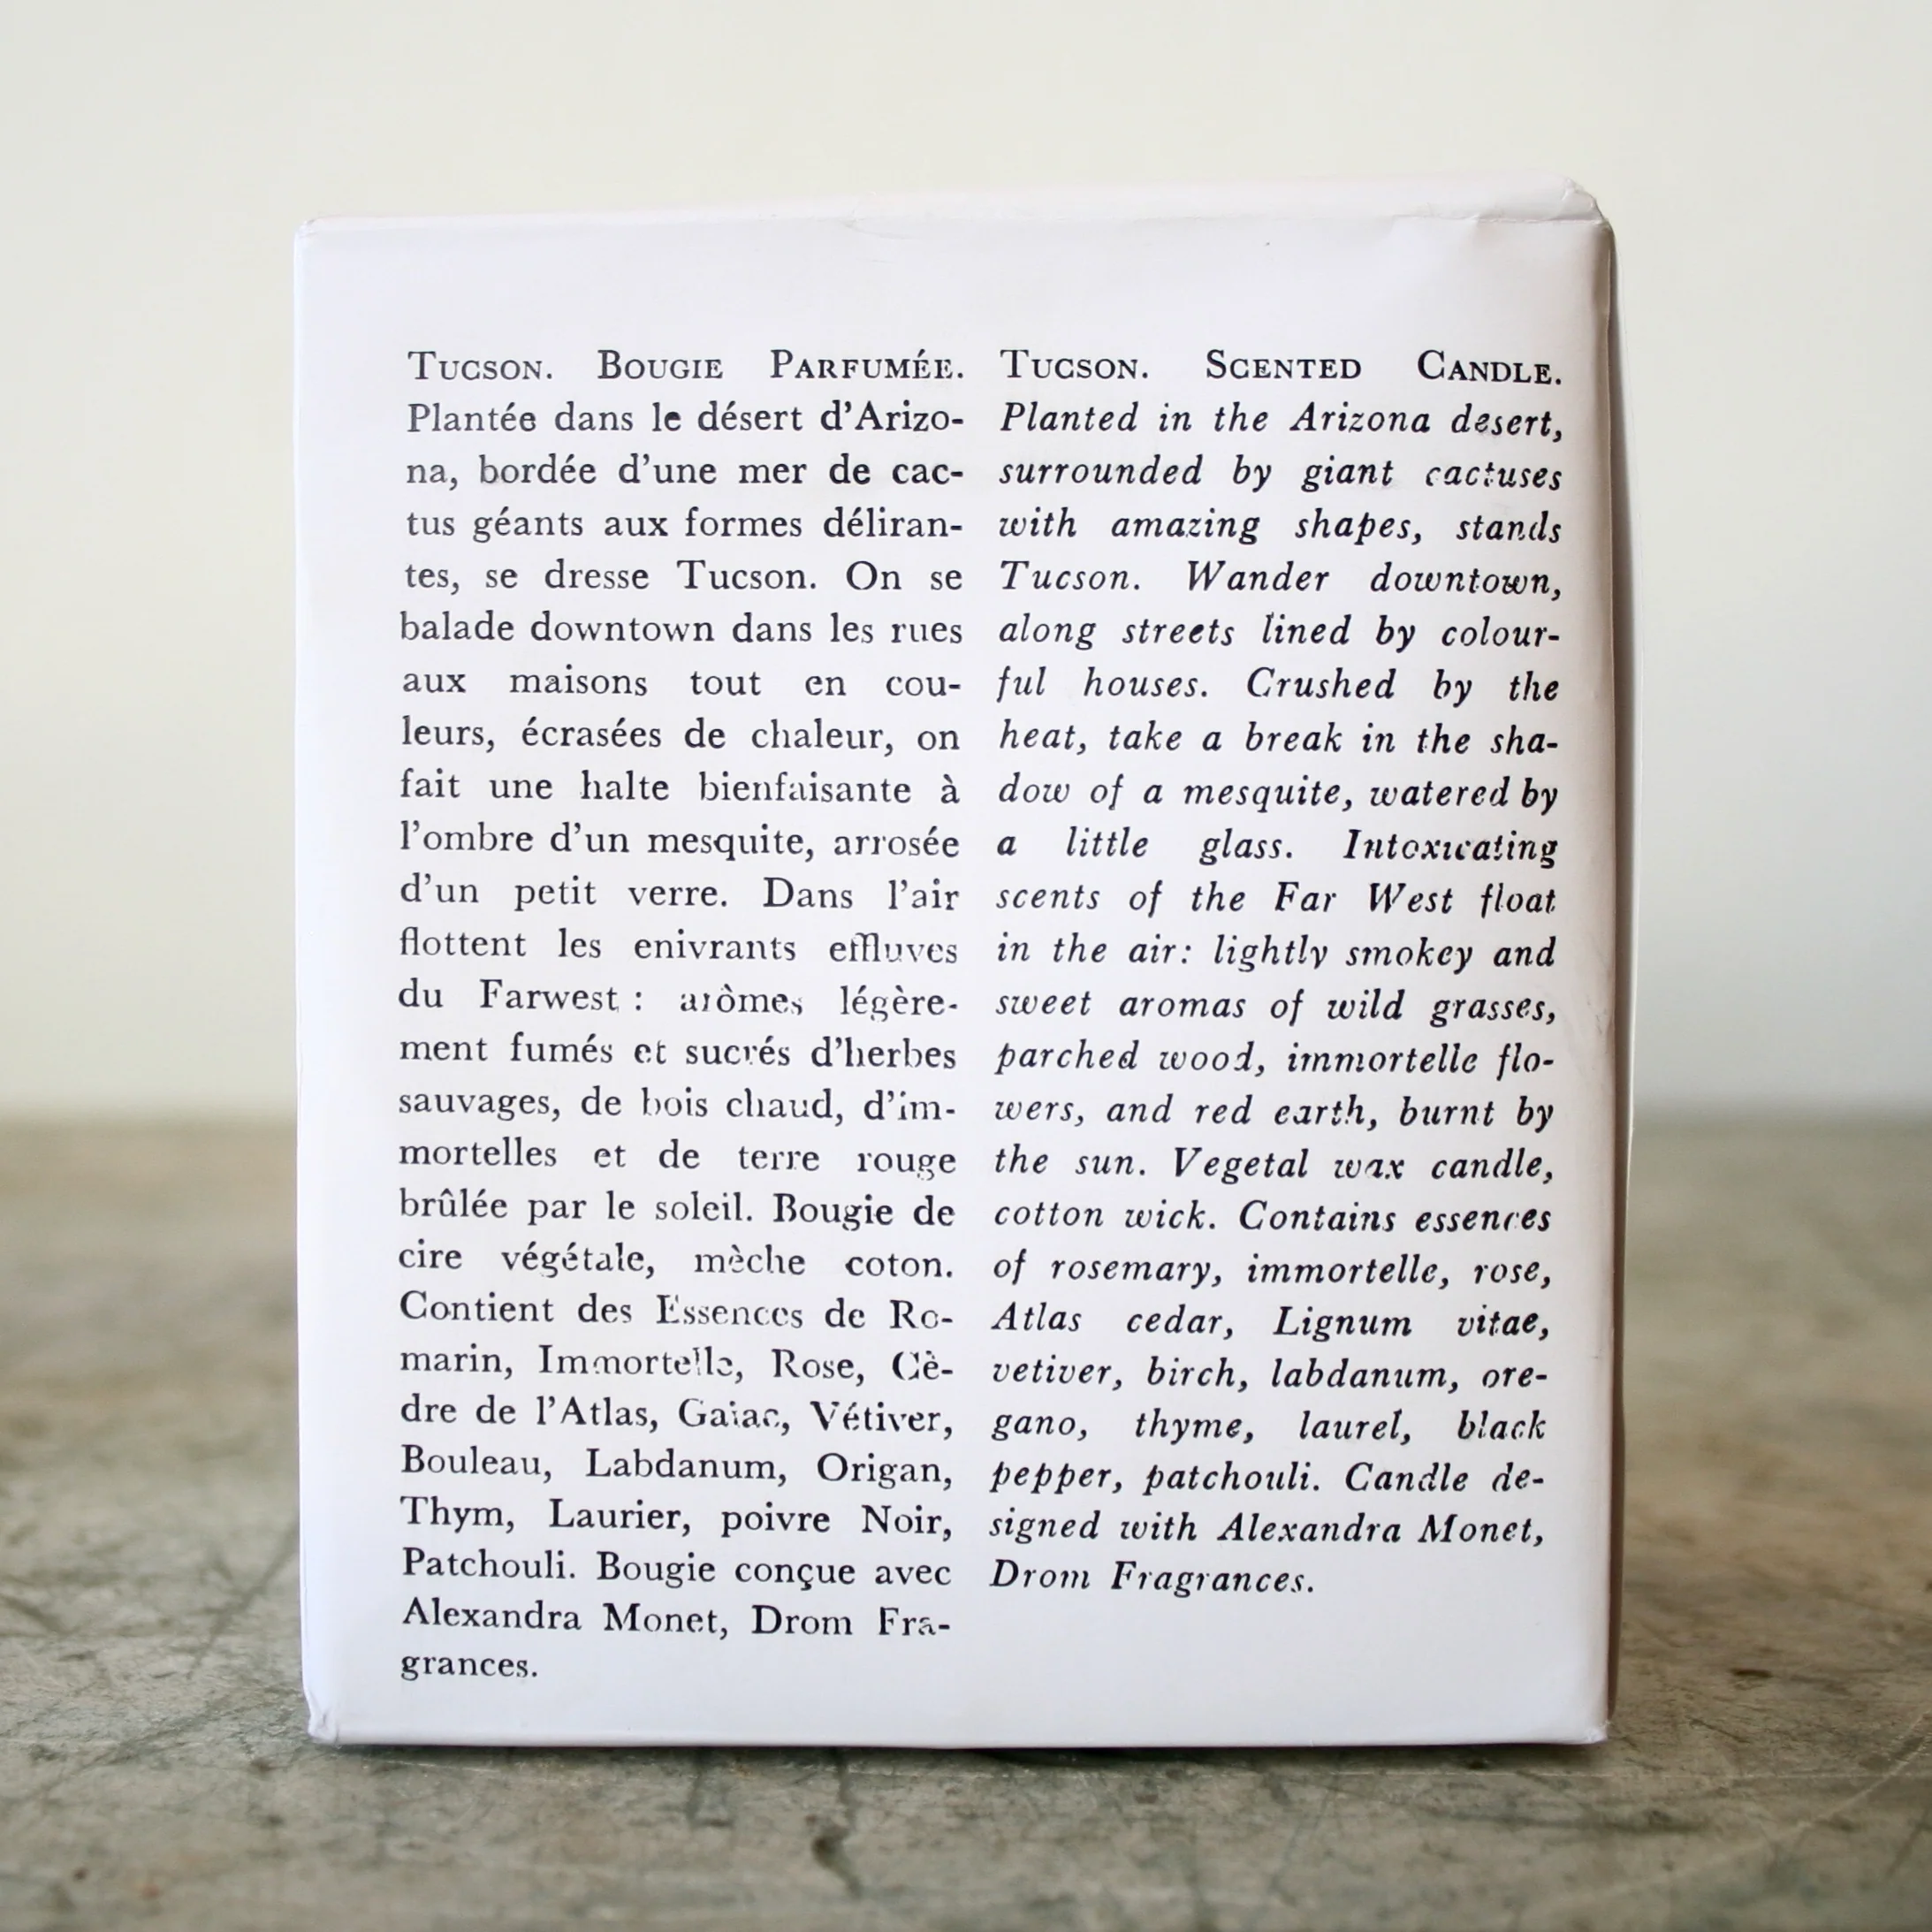 TUCSON. BOUGIE PARFUMÉE.
Plantée dans le désert d'Arizo-
na, bordée d'une mer de cac-
tus géants aux formes déliran-
tes, se dresse Tucson. On se
balade downtown dans les rues
aux maisons tout en cou-
leurs, écrasées de chaleur, on
fait une halte bienfaisante à
l'ombre d'un mesquite, arrosée
d'un petit verre. Dans l'air
flottent les enivrants effluves
du Farwest : arômes légère-
ment fumés et sucrés d'herbes
sauvages, de bois chaud, d'im-
mortelles et de terre rouge
brûlée par le soleil. Bougie de
cire végétale, mèche coton.
Contient des Essences de Ro-
marin, Immortelle, Rose, Cè-
dre de l'Atlas, Gaiac, Vétiver,
Bouleau, Labdanum, Origan,
Thym, Laurier, poivre Noir,
Patchouli. Bougie conçue avec
Alexandra Monet, Drom Fra-
grances.
TUCSON. SCENTED CANDLE.
Planted in the Arizona desert,
surrounded by giant cactuses
with amazing shapes, stands
Tucson. Wander downtown,
along streets lined by colour-
ful houses. Crushed by the
heat, take a break in the sha-
dow of a mesquite, watered by
a little glass. Intoxicating
scents of the Far West float
in the air: lightly smokey and
sweet aromas of wild grasses,
parched wood, immortelle flo-
wers, and red earth, burnt by
the sun. Vegetal wax candle,
cotton wick. Contains essences
of rosemary, immortelle, rose,
Atlas cedar, Lignum vitae,
vetiver, birch, labdanum, ore-
gano, thyme, laurel, black
pepper, patchouli. Candle de-
signed with Alexandra Monet,
Drom Fragrances.